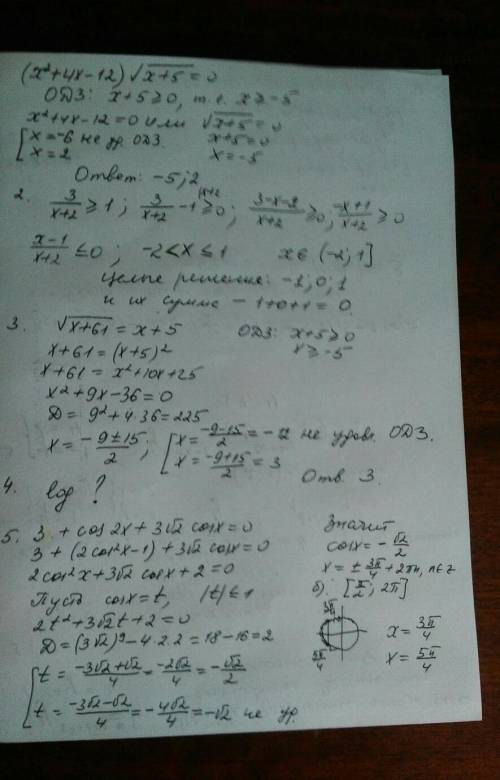 (x²+4x-12)√x+5=0
ОДЗ: x+5≥0, т.е. x≥-5
x²+4x-12=0 или √x+5=0
[x=-6 не уд. ОДЗ. x+5=0
x=2 x=-5
Ответ: -5; 2
2. 3/(x+2) ≥1; 3/(x+2) -1 ≥0; (3-x-2)/(x+2) ≥0; (-x+1)/(x+2) ≥0
(x-1)/(x+2) ≤0; -2<x≤1 x∈(-2; 1]
Целые решение: -1; 0; 1
и их сумма -1+0+1=0.
3. √x+61 = x+5 ОДЗ: x+5≥0
x+61=(x+5)² x≥-5
x+61 = x²+10x+25
x²+9x-36=0
D= 9²+4·36=225
x= (-9±15)/2; [x=(-9-15)/2=-12 не удов. ОДЗ.
x=(-9+15)/2=3
Отв. 3.
4. log ?
5. 3+cos2x+3√2 cosx=0
3+(2cos²x-1)+3√2 cosx=0
2cos²x+3√2 cosx+2=0
Пусть cosx=t, |t|≤1
2t²+3√2t+2=0
D=(3√2)²-4·2·2=18-16=2
[t=(-3√2+√2)/4=-2√2/4=-√2/2
t=(-3√2-√2)/4=-4√2/4=-√2 не уд.
Значит
cosx=-√2/2
x=±3π/4+2πn, n∈z
б) [π/2; 2π]
3π/4
x=3π/4
5π/4
x=5π/4